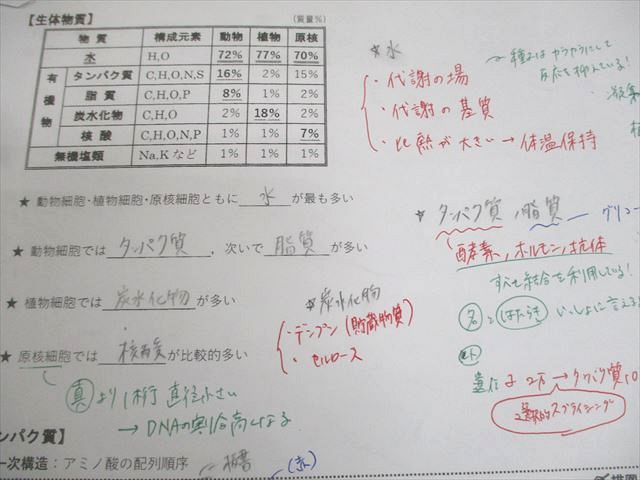 【生体物質】
(質量%)
物質 構成元素 動物 植物 原核
水 H,O 72% 77% 70%
有機物 タンパク質 C,H,O,N,S 16% 2% 15%
脂質 C,H,O,P 8% 1% 2%
炭水化物 C,H,O 2% 18% 2%
核酸 C,H,O,N,P 1% 1% 7%
無機塩類 Na,Kなど 1% 1% 1%
★ 動物細胞・植物細胞・原核細胞ともに 水 が最も多い
★ 動物細胞では タンパク質 , 次いで 脂質 が多い
★ 植物細胞では 炭水化物 が多い
★ 原核細胞では 核酸 が比較的多い
真 より1桁 直径小さい
→ DNAの割合高くなる
ンパク質】
一次構造:アミノ酸の配列順序
板書
(赤)
☆水
・代謝の場
・代謝の基質
・比熱が大きい → 体温保持
種みは カラカラにして
反応を抑えている!
☆炭水化物
・デンプン (貯蔵物質)
・セルロース
☆ タンパク質 , 脂質
グリコー
酵素, ホルモン, 抗体
すべて結合を利用している!
名 と はたらき いっしょに言える
ヒト
遺伝子 2万 → タンパク質10
選択的スプライシング